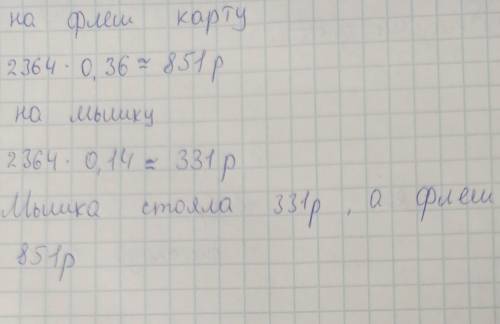 на флеш карту
2364 · 0,36 ≈ 851р
на мышку
2364 · 0,14 ≈ 331р
Мышка стояла 331р, а флеш
851р